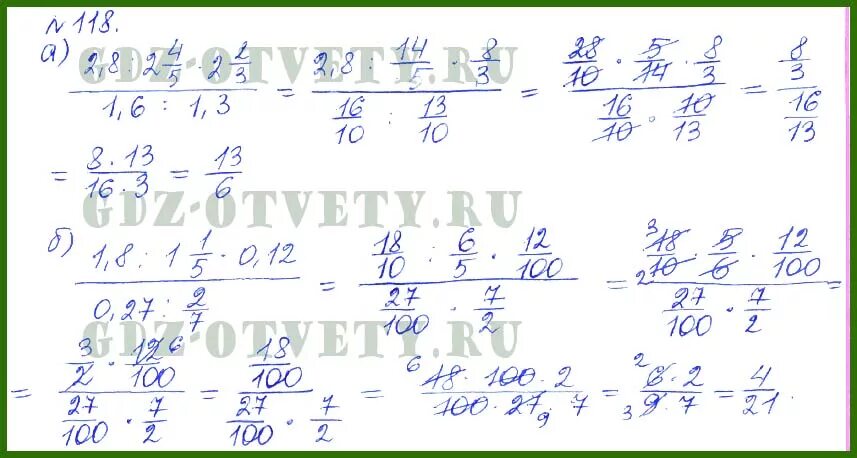 №118.
а) (2,8 : 2 4/5 · 2 2/3)/(1,6 : 1,3) = (2,8 : 14/5 · 8/3)/(16/10 : 13/10) = (28/10 · 5/14 · 8/3)/(16/10 · 10/13) = (8/3)/(16/13)
= (8·13)/(16·3) = 13/6
б) (1,8 : 1 1/5 · 0,12)/(0,27 : 2/7) = (18/10 : 6/5 · 12/100)/(27/100 · 7/2) = (3 18/2 10 · 5/6 · 12/100)/(27/100 · 7/2) =
= (3/2 · 12 6/100)/(27/100 · 7/2) = (18/100)/(27/100 · 7/2) = (6 18 · 100 · 2)/(100 · 27 9 · 7) = (2 6 · 2)/(3 9 · 7) = 4/21.
GDZ-OTVETY.RU
GDZ-OTVETY.RU
GDZ-OTVETY.RU